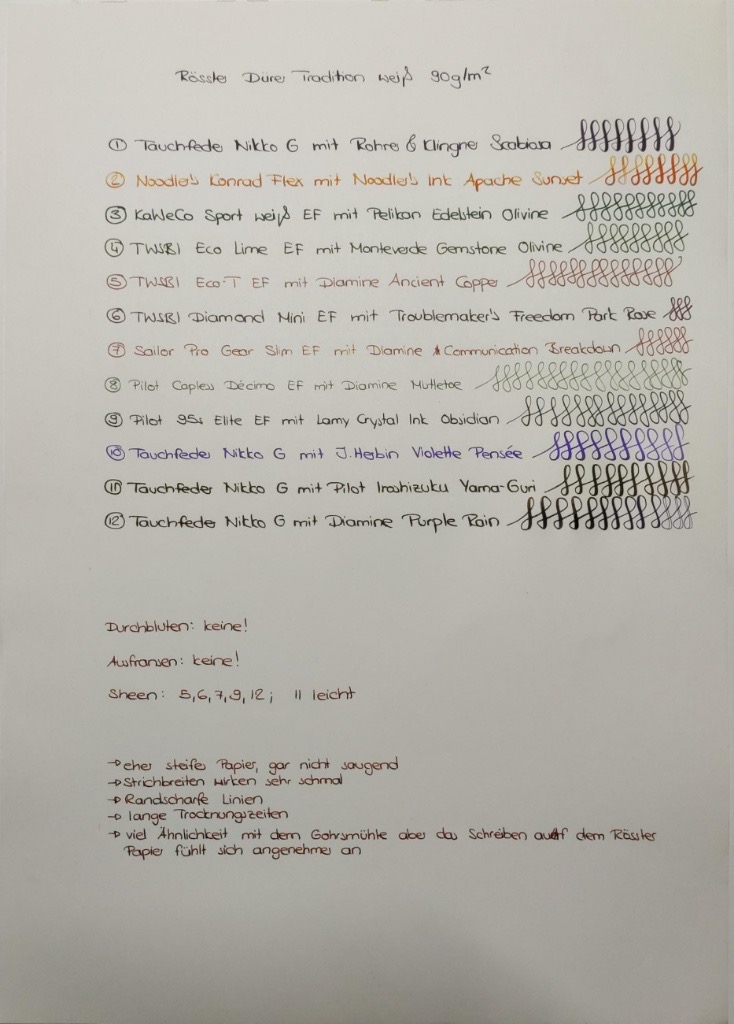 Rössler Dürer Tradition weiß 90g/m²
① Tauchfeder Nikko G mit Rohrer & Klingner Scabiosa
② Noodler's Konrad Flex mit Noodler's Ink Apache Sunset
③ KaWeCo Sport weiß EF mit Pelikan Edelstein Olivine
④ TWSBI Eco Lime EF mit Monteverde Gemstone Olivine
⑤ TWSBI Eco-T EF mit Diamine Ancient Copper
⑥ TWSBI Diamond Mini EF mit Troublemaker's Freedom Park Rose
⑦ Sailor Pro Gear Slim EF mit Diamine Communication Breakdown
⑧ Pilot Capless Décimo EF mit Diamine Mistletoe
⑨ Pilot 95s Elite EF mit Lamy Crystal Ink Obsidian
⑩ Tauchfeder Nikko G mit J. Herbin Violette Pensée
⑪ Tauchfeder Nikko G mit Pilot Iroshizuku Yama-Guri
⑫ Tauchfeder Nikko G mit Diamine Purple Rain
Durchbluten: keine!
Ausfransen: keine!
Sheen: 5,6,7,9,12; 11 leicht
→ eher steifes Papier, gar nicht saugend
→ Strichbreiten wirken sehr schmal
→ Randscharfe Linien
→ lange Trocknungszeiten
→ viel Ähnlichkeit mit dem Gohrsmühle aber das Schreiben auf dem Rössler
Papier fühlt sich angenehmer an